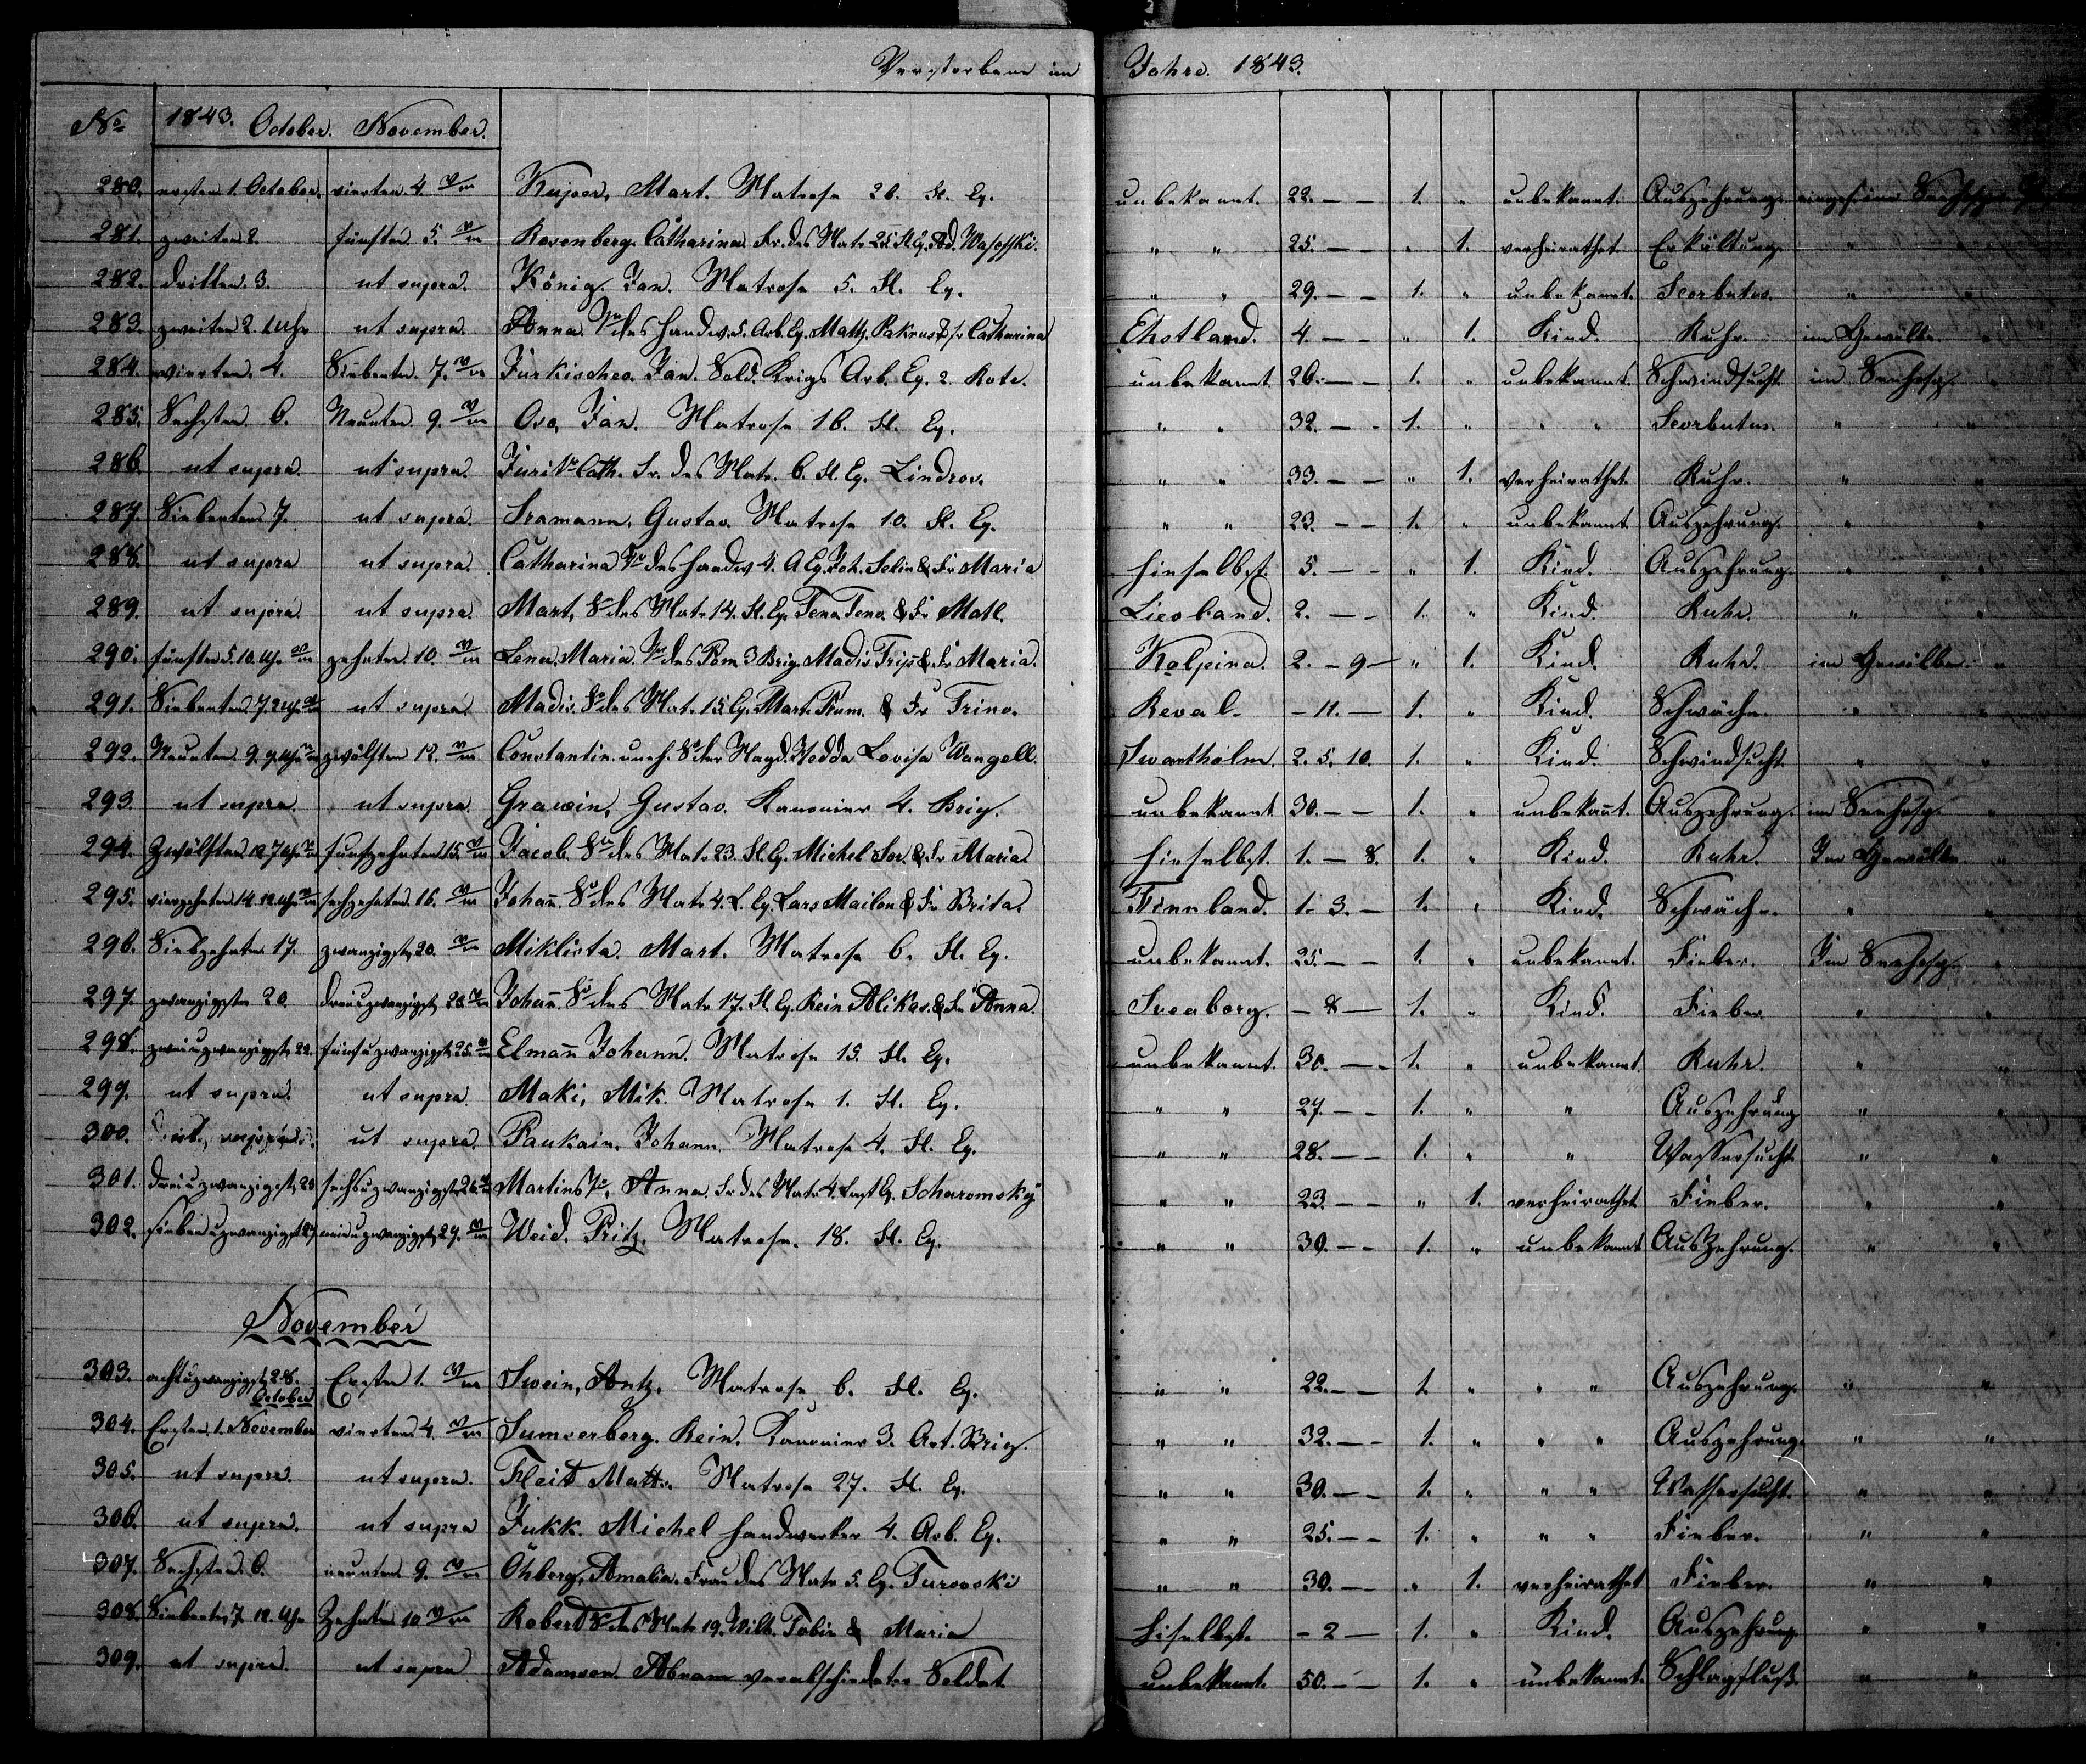 Verstorbene im Jahre. 1843.
No 1843. October. November.
280. ersten 1. October. vierten 4. Kujoer, Mart. Matrose 26. Fl. Eq. unbekannt. 22. – – 1. " unbekannt. Auszehrung.
281. zweiten 2. fünften 5. Rosenberg. Catharina Fr. des Matr. 25. Fl. Eq. Ad. " " 25. – – " 1. verheirathet Erkältung. " "
282. dritten 3. ut supra. König. Jan. Matrose 5. Fl. Eq. " " 29. – – 1. " unbekannt. Scorbutus. " "
283. zweiten 2. 1 Uhr ut supra. Anna. des Handw. 5. Arb. Eq. Math. & Fr. Catharina Ehstland. 4. – – " 1. Kind. Ruhr. im Gewölbe "
284. vierten 4. Siebenten 7. Jan. Sold. Arb. Eq. 2. Rote. unbekannt 26. – – 1. " unbekannt. Schwindsucht im Seehosp. "
285. Sechsten 6. Neunten 9. Oso, Jan. Matrose 16. Fl. Eq. " " 32. – – 1. " " " Scorbutus. " "
286. ut supra. ut supra. Cath. Fr. des Matr. 6. Fl. Eq. Lindros. " " 33. – – " 1. verheirathet. Ruhr. " "
287. Siebenten 7. ut supra. Sramann, Gustav. Matrose 10. Fl. Eq. " " 23. – – 1. " unbekannt Auszehrung. " "
288. ut supra ut supra. Catharina des Handw 4. A Eq. Joh. Selin & Fr Maria hieselbst. 5. – – " 1. Kind. Auszehrung. " "
289. ut supra ut supra. Mart, des Matr. 14. Fl. Eq. Tena Teno. & Fr Matl. Liesland. 2. – – 1. " Kind. Ruhr. " "
290. fünften 5. 10. Uhr zehnten 10. Lena, Maria des 3 Brig. Madis & Fr Maria. Kolpina. 2. – 9 – " 1. Kind. Ruhr. im Gewölbe "
291. Siebenten 7. 2 Uhr ut supra. Madis. des Mat. 15. Eq. Mart. & Fr Trino. Reval. – 11. – 1. " Kind. Schwäche. " "
292. Neunten 9. 9. Uhr zwölften 12. Constantin. uneh. der Magd. Hedda Lovisa Wangell. Swartholm. 2. 5. 10. 1. " Kind. Schwindsucht. " "
293. ut supra. ut supra Grawin, Gustav. Kanonier 4. Brig. unbekannt 30. – – 1. " unbekannt. Auszehrung. im Seehosp. "
294. Zwölften 12. 7 Uhr fünfzehnten 15. Jacob. des Matr. 23. Fl. Eq. Michel Sor. & Fr. Maria. hieselbst. 1. – 8. 1. " Kind. Ruhr. Im Gewölbe "
295. vierzehnten 14. 12. Uhr sechzehnten 16. Johan̄. des Matr. 4. L. Eq. Lars Mailon & Fr Brita. Finnland. 1. 3. – 1. " Kind. Schwäche. " "
296. Siebzehnten 17. zwanzigst. 20. Miklista. Mart. Matrose 6. Fl. Eq. unbekannt. 25. – – 1. " unbekannt. Fieber. Im Seehosp. "
297. zwanzigsten 20. dreiuzwanzigst. 23. Johan̄. des Matr 17. Fl. Eq. Rein Alikas. & Fr Anna. Sveaborg. – 8 – 1. " Kind. Fieber. " "
298. zweiuzwanzigst. 22. fünfuzwanzigst. 25. Elman̄ Johann. Matrose 15. Fl. Eq. unbekannt. 30. – – 1. " unbekannt. Ruhr. " "
299. ut supra. ut supra. Maki, Mik. Matrose 1. Fl. Eq. " " 27. – – 1. " " Auszehrung " "
300. ut supra. Paukain, Johann. Matrose 4. Fl. Eq. " " 28. – – 1. " " Wassersucht " "
301. dreiuzwanzigst. 23 sechsuzwanzigst. 26. Martins Anna. Fr. des Matr. 4. Eq. " " 23. – – " 1. verheirathet Fieber. " "
302. siebenuzwanzigst. 27 neunuzwanzigst. 29. Weid. Fritz. Matrose. 18. Fl. Eq. " " 30. – – 1. " unbekannt Auszehrung. " "
November
303. achtuzwanzigst. 28. October Ersten 1. Swein, Antz. Matrose 6. Fl. Eq. " " 22. – – 1. " " " Auszehrung. " "
304. Ersten 1. November vierten 4. Sumserberg. Rein. Kanonier 3. Art. Brig. " " 32. – – 1. " " " Auszehrung. " "
305. ut supra. ut supra. Fleit Matts. Matrose 27. Fl. Eq. " " 30. – – 1. " " " Wassersucht. " "
306. ut supra. ut supra Jukk. Michel Handwerker 4. Arb. Eq. " " 25. – – 1. " " " Fieber. " "
307. Sechsten 6. neunten 9. Öhberg, Amalia. Frau des Matr 5. Eq. Turovski " " 30. – – " 1. verheirathet Fieber. " "
308. Siebenten 7. 12. Uhr Zehnten 10 Robert des Matr 19. Wilh. Tobin & Maria hiselbst. – 2 – 1. " Kind. Auszehrung " "
309. ut supra. ut supra Adamson. Abram verabschiedeter Soldat unbekannt. 50. – – 1. " unbekannt. Schlagfluß. " "